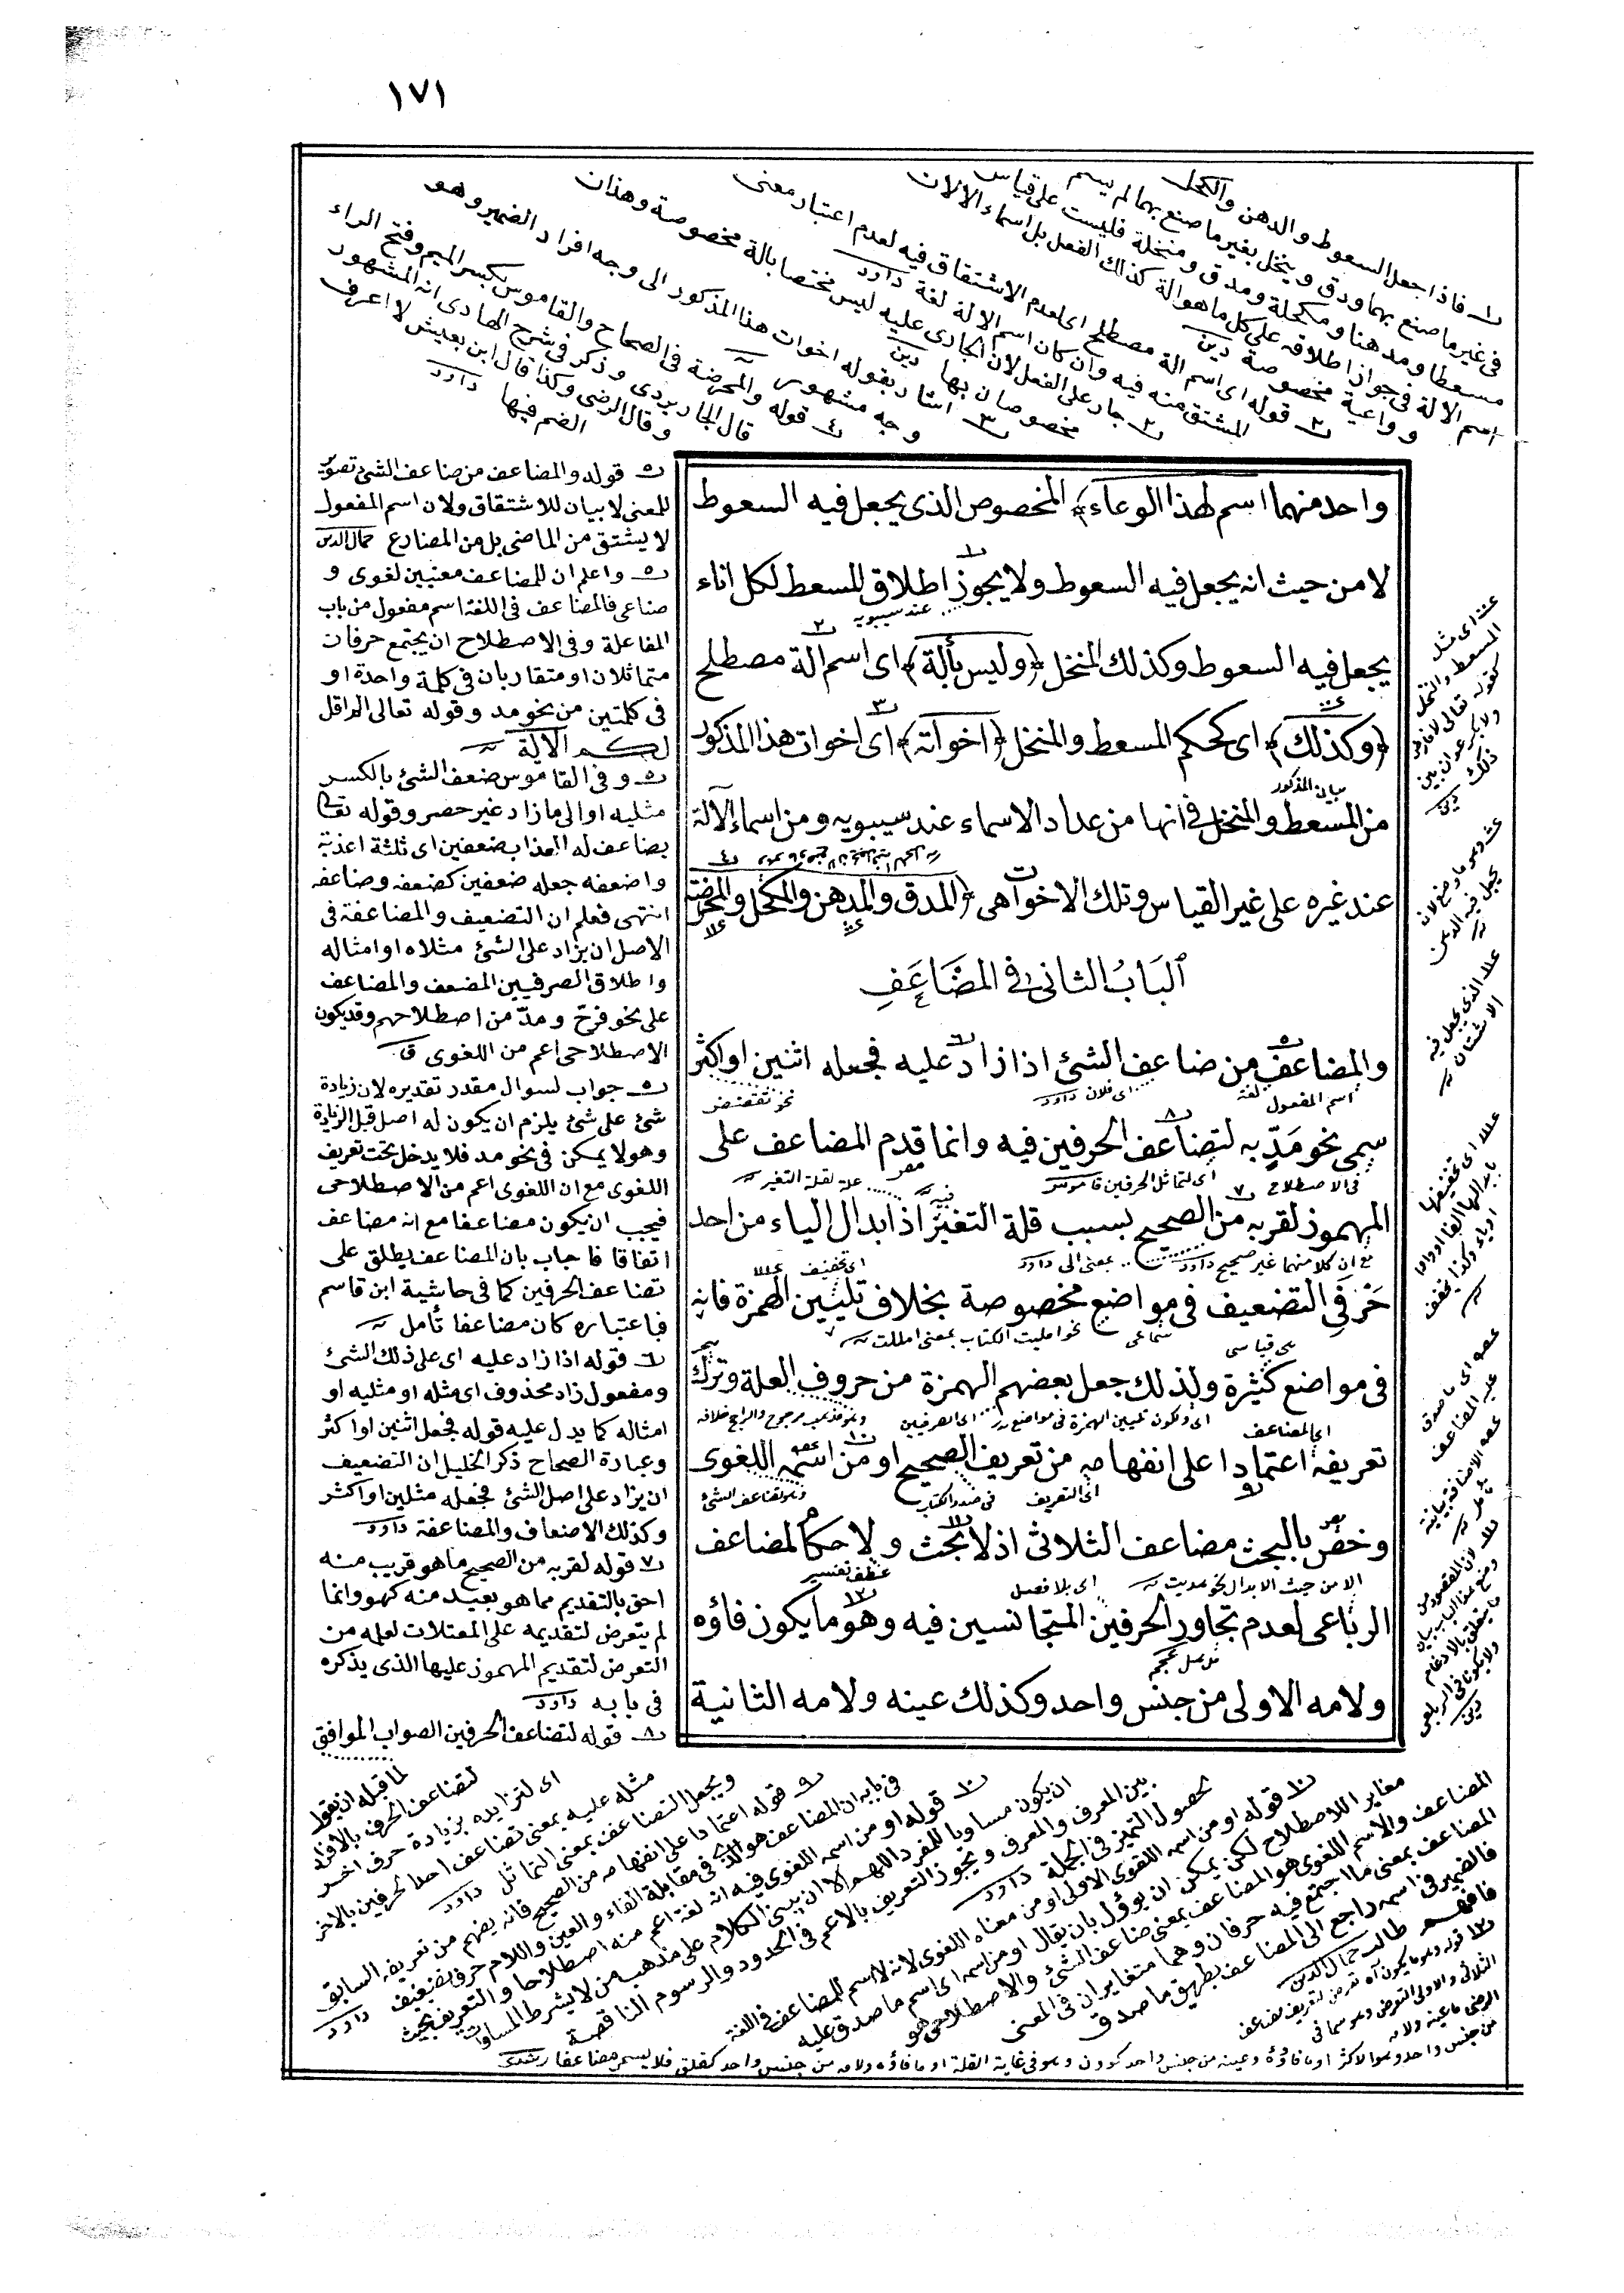 ١٧١
١ فاذا جعل السعوط والدهن والكحل
فى غير ما صنع بهما ودق وينخل بغير ما صنع بهما لم يسم
مسعطا ومدهنا ومكحلة ومدق ومنخلة فليست على قياس
اسم الالة فى جواز اطلاقه على كل ما هو الة كذلك الفعل بل اسماء الالات
وواعية مخصوصة دين
٢ قوله اى اسم الة مصطلح اى لعدم الاشتقاق فيه لعدم اعتبار معنى
المشتق منه فيه وان كان اسم الالة لغة داود
٢ جار على الفعل لان الجارى عليه ليس مختصا بالة مخصوصة وهذان
مخصوصان بها دين
٣ اشار بقوله اخوات هذا المذكور الى وجه افراد الضمير وهو
وجه مشهور
٤ قوله والمحرضة فى الصحاح والقاموس بكسر الميم وفتح الراء
قال الجاربردى وذكر فى شرح الهادى انه المشهور
وقال الرضى وكذا قال ابن يعيش لا اعرف
الضم فيها داود
واحد منهما اسم لهذا الوعاء﴾ المخصوص الذى يجعل فيه السعوط
لا من حيث انه يجعل فيه السعوط ولا يجوز اطلاق المسعط لكل اناء
عند سيبويه
يجعل فيه السعوط وكذلك المنخل ﴿وليس بألة﴾ اى اسم الة مصطلح
﴿وكذلك﴾ اى كحكم المسعط والمنخل ﴿اخواته﴾ اى اخوات هذا المذكور
بيان المذكور
من المسعط والمنخل فى انها من عداد الاسماء عند سيبويه ومن اسماء الآلة
عند غيره على غير القياس وتلك الاخوات هى ﴿المدق والمدهن والمكحل والمحرضة
اَلبَابُ الثانى فى المضَاعَفِ
والمضاعف من ضاعف الشئ اذا زاد عليه فجعله اثنين او اكثر
اسم المفعول لغة اى فلان داود
سمى نحو مَدّ به لتضاعف الحرفين فيه وانما قدم المضاعف على
فى الاصطلاح اى لتماثل الحرفين قاموس علة لقلة التغير
المهموز لقربه من الصحيح بسبب قلة التغير اذ ابدال الياء من احد
مع ان كلا منهما غير صحيح داود بمعنى الى داود اى تخفيف
حَرْفَى التضعيف فى مواضع مخصوصة بخلاف تليين الهمزة فانه
قياسى سماعى نحو امليت الكتاب بمعنى امللت
فى مواضع كثيرة ولذلك جعل بعضهم الهمزة من حروف العلة وترك
اى المضاعف اى ولكون تليين الهمزة فى مواضع اى الصرفيين
تعريفه اعتمادا على انفهامه من تعريف الصحيح او من اسمه اللغوى
اى التعريف فى صدر الكتاب وهو تضاعف الشئ
وخص بالبحث مضاعف الثلاثى اذ لا بحث ولا حكم لمضاعف
عطف تفسير
الا من حيث الابدال نحو دهديت اى بلا فصل
الرباعى لعدم تجاور الحرفين المتجانسين فيه وهو ما يكون فاؤه
ولامه الاولى من جنس واحد وكذلك عينه ولامه الثانية
٥ قوله والمضاعف من ضاعف الشئ تصوير
للمعنى لا بيان للاشتقاق ولان اسم المفعول
لا يشتق من الماضى بل من المضارع جمال الدين
٥ واعلم ان للمضاعف معنيين لغوى و
صناعى فالمضاعف فى اللغة اسم مفعول من باب
المفاعلة وفى الاصطلاح ان يجتمع حرفان
متماثلان او متقاربان فى كلمة واحدة او
فى كلمتين من نحو مد وقوله تعالى الم اقل
لكم الآية
٥ وفى القاموس ضعف الشئ بالكسر
مثليه او الى ما زاد غير حصر وقوله تعالى
يضاعف له العذاب ضعفين اى ثلثة اعذبة
واضعفه جعله ضعفين كضعفه وضاعفه
انتهى فعلم ان التضعيف والمضاعفة فى
الاصل ان يزاد على الشئ مثلاه او امثاله
واطلاق الصرفيين المضعف والمضاعف
على نحو فرح ومدّ من اصطلاحهم وقد يكون
الاصطلاحى اعم من اللغوى ق
٥ جواب لسوال مقدر تقديره لان زيادة
شئ على شئ يلزم ان يكون له اصل قبل الزيادة
وهو لا يمكن فى نحو مد فلا يدخل تحت تعريف
اللغوى مع ان اللغوى اعم من الاصطلاحى
فيجب ان يكون مضاعفا مع انه مضاعف
اتفاقا فاجاب بان المضاعف يطلق على
تضاعف الحرفين كما فى حاشية ابن قاسم
فباعتباره كان مضاعفا تأمل
٦ قوله اذا زاد عليه اى على ذلك الشئ
ومفعول زاد محذوف اى مثله او مثليه او
امثاله كما يدل عليه قوله فجعل اثنين او اكثر
وعبارة الصحاح ذكر الخليل ان التضعيف
ان يزاد على اصل الشئ فجعله مثلين او اكثر
وكذلك الاضعاف والمضاعفة داود
٧ قوله لقربه من الصحيح ما هو قريب منه
احق بالتقديم مما هو بعيد منه كهو وانما
لم يتعرض لتقديمه على المعتلات لعلمه من
التعرض لتقديم المهموز عليها الذى يذكره
فى بابه داود
٨ قوله لتضاعف الحرفين الصواب الموافق
لما قبله ان يقول
لتضاعف الحرف بالافراد
اى لتزايده بزيادة حرف اخر
مثله عليه بمعنى تضاعف احد الحرفين بالاخر
ويجعل التضاعف بمعنى التماثل داود
٩ قوله اعتمادا على انفهامه من الصحيح فانه يفهم من تعريفه السابق
فى بابه ان المضاعف هو الذى فى مقابلة الفاء والعين واللام حرف تضعيف داود
١٠ قوله او من اسمه اللغوى فيه انه لغة اعم منه اصطلاحا والتعريف بحيث
ان يكون مساويا للفرد اللهم الا ان يبنى الكلام على مذهب من لا يشرط المساوات
بين المعرف والمعرف ويجوز التعريف بالاعم فى الحدود والرسوم الناقصة
لحصول التميز فى الجملة داود
١٠ قوله او من اسمه اللغوى الاولى او من معناه اللغوى لانه لا اسم للمضاعف فى اللغة
مغاير اللاصطلاح لكن يمكن ان يؤول بان يقال او من اسمه اى اسم ما صدق عليه
المضاعف والاسم اللغوى هو المضاعف بمعنى ضاعف الشئ والاصطلاحى هو
المضاعف بمعنى ما اجتمع فيه حرفان وهما متغايران فى المعنى
فالضمير فى اسمه راجع الى المضاعف بطريق ما صدق
فافهم طالب جمال الدين
من جنس واحد وهو الاكثر او ما فاؤه وعينه من جنس واحد كددن وهو فى غاية القلة او ما فاؤه ولامه من جنس واحد كقلق فلا يسمى مضاعفا رشدى